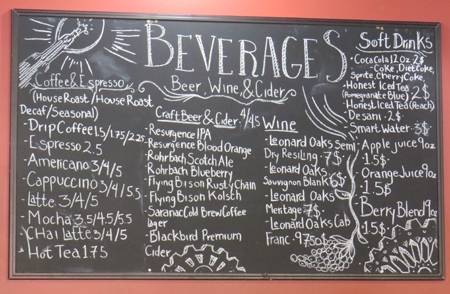 BEVERAGES
Beer, Wine, & Cider
Coffee & Espresso
(House Roast/House Roast
Decaf/Seasonal)
- Drip Coffee 1.5/1.75/2.25
Espresso 2.5
- Americano 3/4/5
- Cappuccino 3/4/5.5
- Latte 3/4/5
- Mocha 3.5/4.5/5.5
- Chai Latte 3/4/5
Hot Tea 1.75
Craft Beer & Cider 4/4.5
- Resurgence IPA
- Resurgence Blood Orange
- Rohrbach Scotch Ale
- Rohrbach Blueberry
- Flying Bison Rusty Chain
- Flying Bison Kolsch
- Saranac Cold Brew Coffee
Lager
- Blackbird Premium
Cider
Wine
- Leonard Oaks Semi
Dry Resiling - 7$
- Leonard Oaks
Sauvignon Blank 6$
- Leonard Oaks
Meritage 7$
- Leonard Oaks Cab
Franc - 9.750$
Soft Drinks
- Coca Cola 12oz 2$
- Coke, Diet Coke,
Sprite, Cherry Coke
- Honest Iced Tea 2$
(Pomegranate Blue)
- Honest Iced Tea (Peach)
- Desani - 2$
- Smart Water - 3$
- Apple juice 9oz
1.5$
- Orange Juice 9oz
1.5$
- Berry Blend 9oz
1.5$